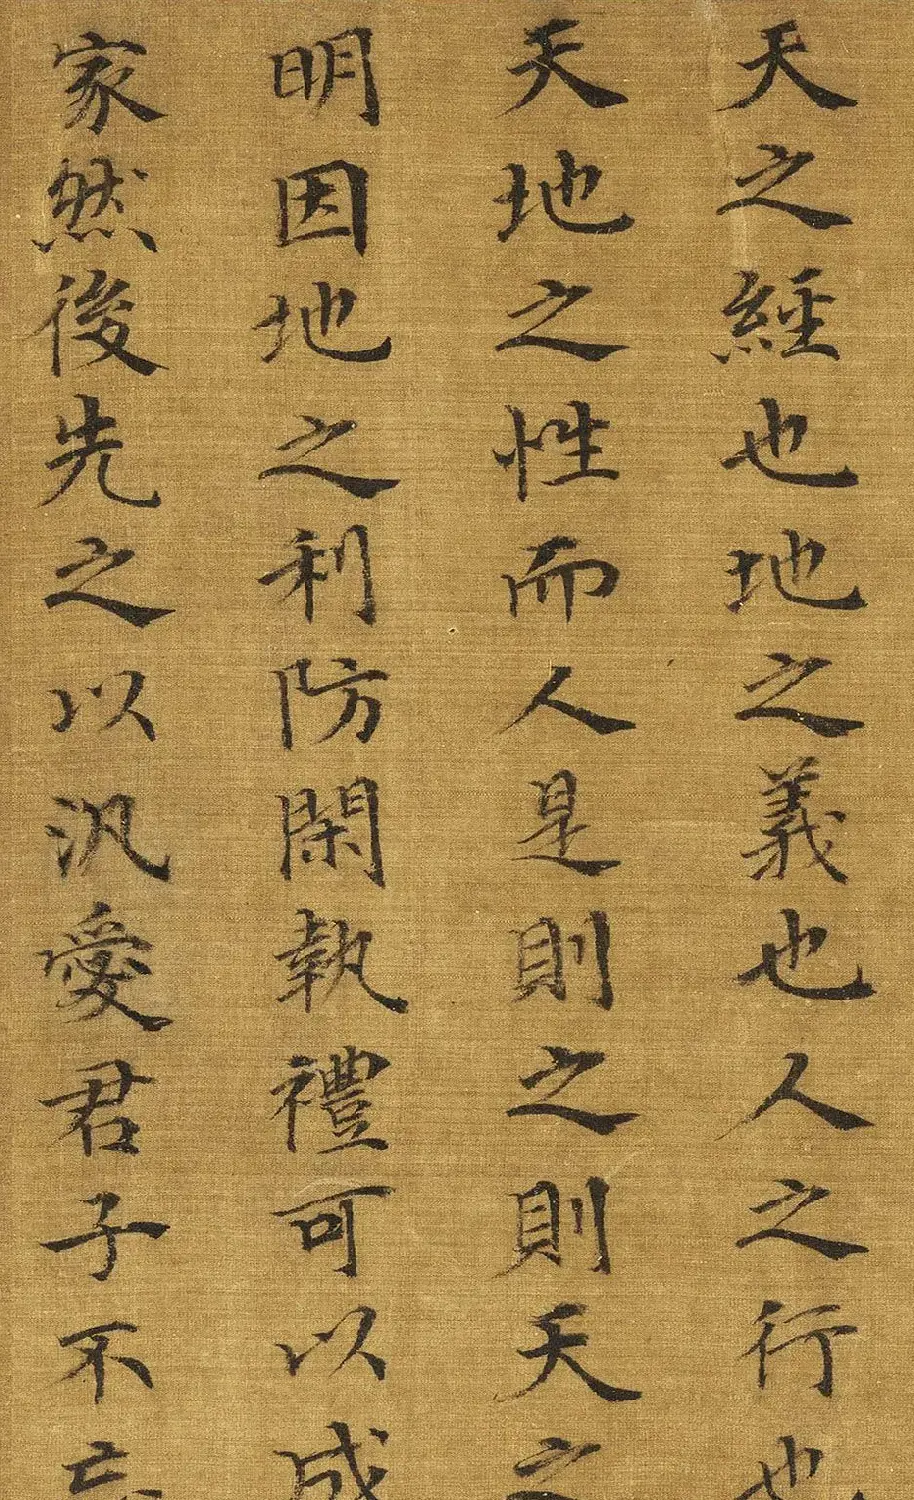 天之經也地之義也人之行也
天地之性而人是則之則天之
明因地之利防閑執禮可以成
家然後先之以汎愛君子不忘